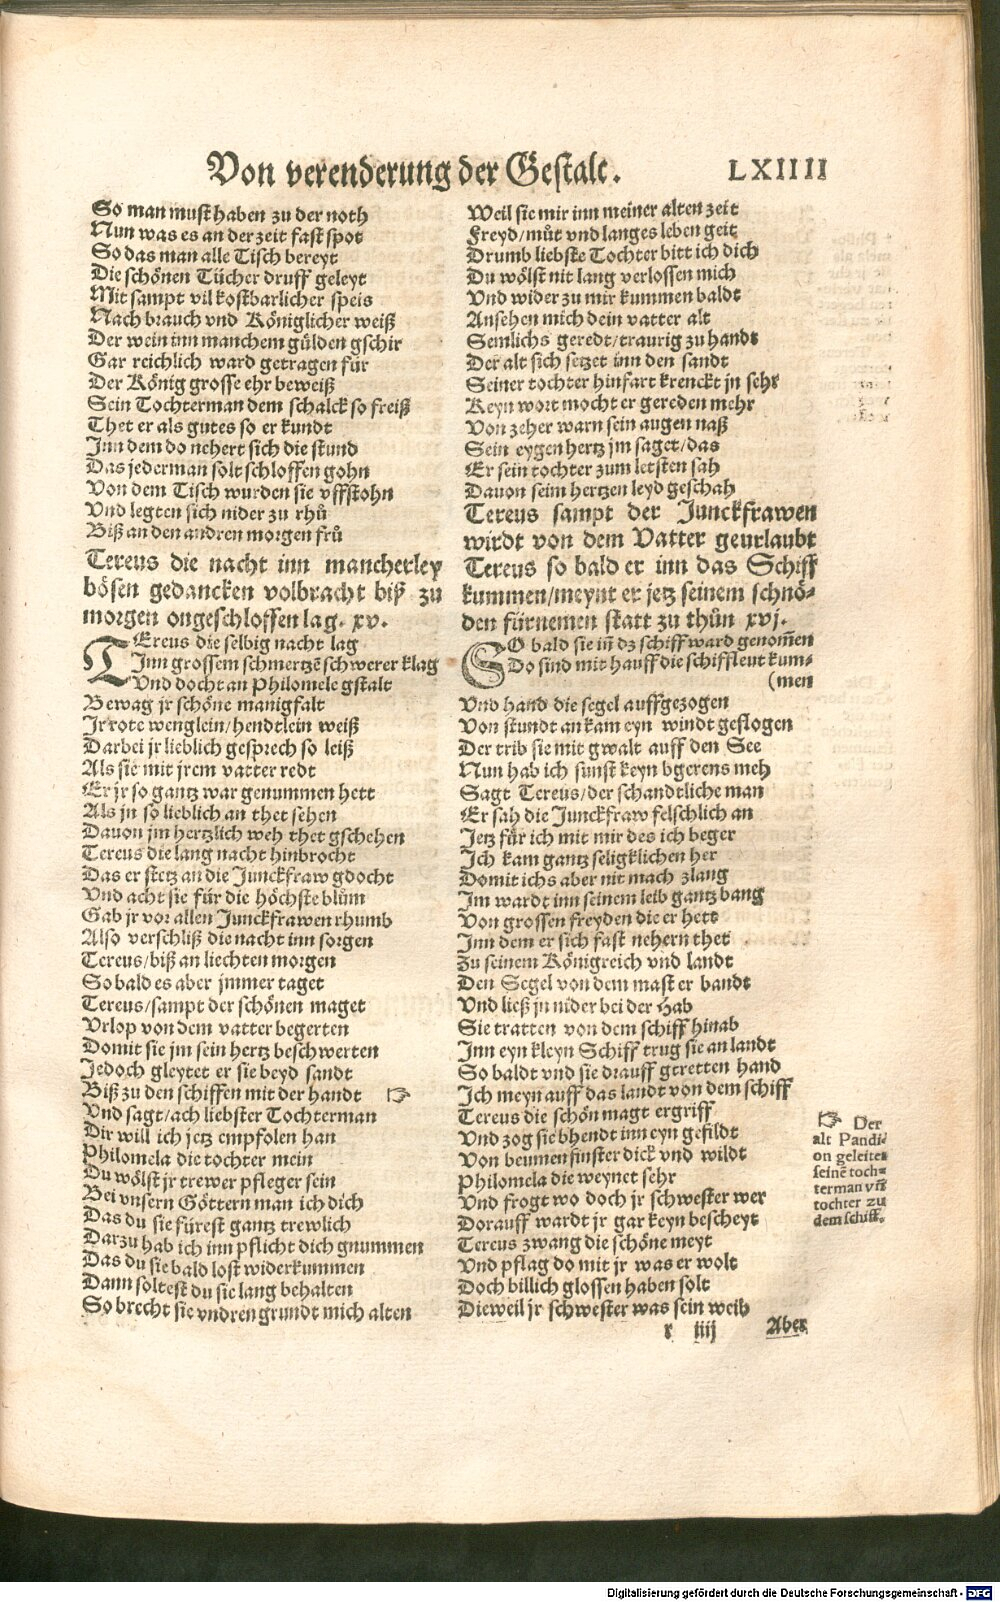 Von verenderung der Gestalt.
LXIIII
So man must haben zu der noth
Nun was es an der zeit fast spot
So das man alle Tisch bereyt
Die schönen Tücher druff geleyt
Mit sampt vil kostbarlicher speis
Nach brauch vnd Königlicher weiß
Der wein inn manchem gülden gschir
Gar reichlich ward getragen für
Der König grosse ehr beweiß
Sein Tochterman dem schalck so freiß
Thet er als gutes so er kundt
Inn dem do nehert sich die stund
Das jederman solt schloffen gohn
Von dem Tisch wurden sie vffstohn
Vnd legten sich nider zu rhů
Biß an den andren morgen frů
Tereus die nacht inn mancherley
bösen gedancken volbracht biß zu
morgen ongeschloffen lag. xv.
TEreus die selbig nacht lag
Inn grossem schmertzē schwerer klag
Vnd docht an Philomele gstalt
Bewag jr schöne manigfalt
Ir rote wenglein/hendtlein weiß
Darbei jr lieblich gesprech so leiß
Als sie mit jrem vatter redt
Er jr so gantz war genummen hett
Als jn so lieblich an thet sehen
Dauon jm hertzlich weh thet gschehen
Tereus die lang nacht hinbrocht
Das er stetz an die Junckfraw gdocht
Vnd acht sie für die höchste blům
Gab jr vor allen Junckfrawen rhumb
Also verschliß die nacht inn sorgen
Tereus/biß an liechten morgen
So bald es aber jmmer taget
Tereus/sampt der schönen maget
Vrlop von dem vatter begerten
Domit sie jm sein hertz beschwerten
Jedoch gleytet er sie beyd sandt
Biß zu den schiffen mit der handt ☞
Vnd sagt/ach liebster Tochterman
Dir will ich jetz empfolen han
Philomela die tochter mein
Du wölst jr trewer pfleger sein
Bei vnsern Göttern man ich dich
Das du sie fürest gantz trewlich
Darzu hab ich inn pflicht dich gnummen
Das du sie bald lost widerkummen
Dann soltest du sie lang behalten
So brecht sie vndren grundt mich alten
Weil sie mir inn meiner alten zeit
Freyd/můt vnd langes leben geit
Drumb liebste Tochter bitt ich dich
Du wölst nit lang verlossen mich
Vnd wider zu mir kummen baldt
Ansehen mich dein vatter alt
Semlichs geredt/traurig zu handt
Der alt sich setzet inn den sandt
Seiner tochter hinfart krenckt jn sehr
Keyn wort mocht er gereden mehr
Von zeher warn sein augen naß
Sein eygen hertz jm saget/das
Er sein tochter zum letsten sah
Dauon seim hertzen leyd geschah
Tereus sampt der Junckfrawen
wirdt von dem Vatter geurlaubt
Tereus so bald er inn das Schiff
kummen/meynt er jetz seinem schnö-
den fürnemen statt zu thůn xvj.
SO bald sie iñ dz schiff ward genom̃en
Do sind mit hauff die schiffleut kum-
(men
Vnd hand die segel auffgezogen
Von stundt an kam eyn windt geflogen
Der trib sie mit gwalt auff den See
Nun hab ich sunst keyn bgerens meh
Sagt Tereus/der schandtliche man
Er sah die Junckfraw felschlich an
Jetz für ich mit mir des ich beger
Ich kam gantz seligklichen her
Domit ichs aber nit mach zlang
Im wardt inn seinem leib gantz bang
Von grossen freyden die er hett
Inn dem er sich fast nehern thet
Zu seinem Königreich vnd landt
Den Segel von dem mast er bandt
Vnd ließ jn nider bei der Hab
Sie tratten von dem schiff hinab
Inn eyn kleyn Schiff trug sie an landt
So baldt vnd sie drauff gtretten hand
Ich meyn auff das landt von dem schiff
Tereus die schön magt ergriff
Vnd zog sie bhendt inn eyn gefildt
Von beumen finster dick vnd wildt
Philomela die weynet sehr
Vnd frogt wo doch jr schwester wer
Dorauff wardt jr gar keyn bescheyt
Tereus zwang die schöne meyt
Vnd pflag do mit jr was er wolt
Doch billich glossen haben solt
Dieweil jr schwester was sein weib
☞ Der
alt Pandi-
on geleitet
seinē toch-
terman vñ
tochter zu
dem schiff.
r iiij
Aber
Digitalisierung gefördert durch die Deutsche Forschungsgemeinschaft - DFG